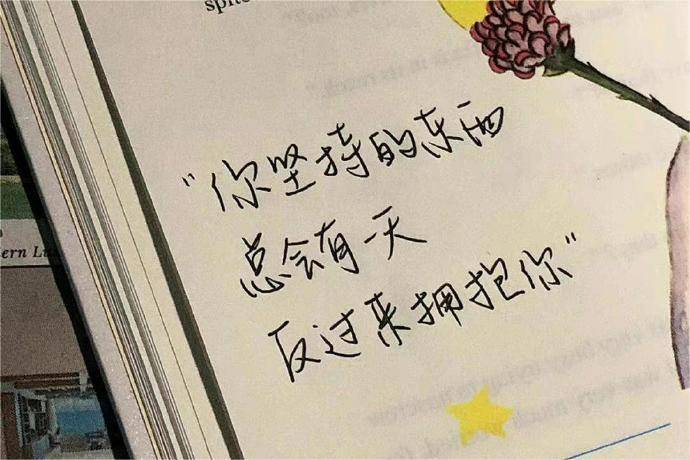 spite
"你坚持的东西
总会有一天
反过来拥抱你"
ern Lu